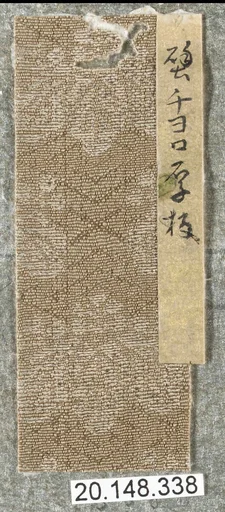 チヨロ厚板
20.148.338